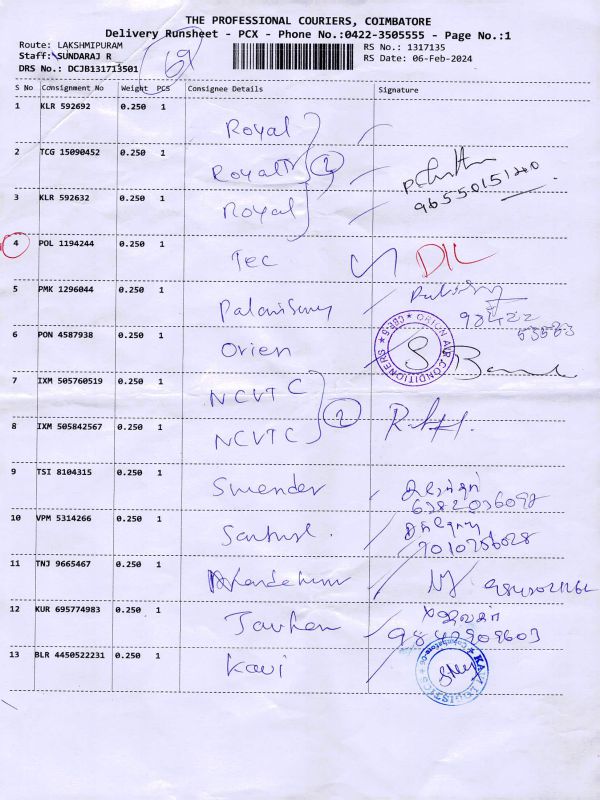 THE PROFESSIONAL COURIERS, COIMBATORE
Delivery Runsheet - PCX - Phone No.:0422-3505555 - Page No.:1
Route: LAKSHMIPURAM
Staff: SUNDARAJ R
DRS No.: DCJB131713501
RS No.: 1317135
RS Date: 06-Feb-2024
S No Consignment No Weight PCS Consignee Details Signature
1 KLR 592692 0.250 1 Royal
2 TCG 15090452 0.250 1 Royal
2
9655015120
3 KLR 592632 0.250 1 Royal
4 POL 1194244 0.250 1 Tec DIL
5 PMK 1296044 0.250 1 Palanisamy
98422
6 PON 4587938 0.250 1 Orien
ORION AIR CONDITIONERS
7 IXM 505760519 0.250 1 NCVTC
2
8 IXM 505842567 0.250 1 NCVTC
9 TSI 8104315 0.250 1 Surender
10 VPM 5314266 0.250 1
11 TNJ 9665467 0.250 1
12 KUR 695774983 0.250 1
9842909603
13 BLR 4450522231 0.250 1 Kavi